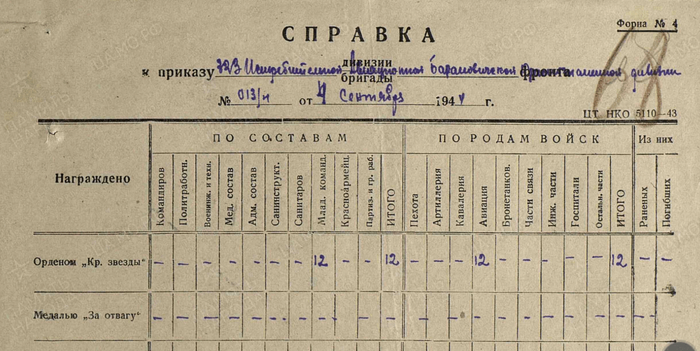 Форма № 4
СПРАВКА
к приказу 323 Истребительной дивизии бригады Авиационной Барановичской фронта дивизии
№ 013/н от 4 Сентября 1944 г.
ЦТ. НКО 5110—43
Награждено
ПО СОСТАВАМ
ПО РОДАМ ВОЙСК
Из них
Командиров
Политработн.
Военинж. и техн.
Мед. состав
Адм. состав
Санинструкт.
Санитаров
Млад. команд.
Красноармейц.
Партиз. и гр. раб.
ИТОГО
Пехота
Артиллерия
Кавалерия
Авиация
Бронетанков.
Части связи
Инж. части
Госпитали
Остальн. части
ИТОГО
Раненых
Погибших
Орденом „Кр. звезды“ — — — — — — — 12 — — 12 — — — 12 — — — — — 12 — —
Медалью „За отвагу“ — — — — — — — — — — — — — — — — — — — — — — —